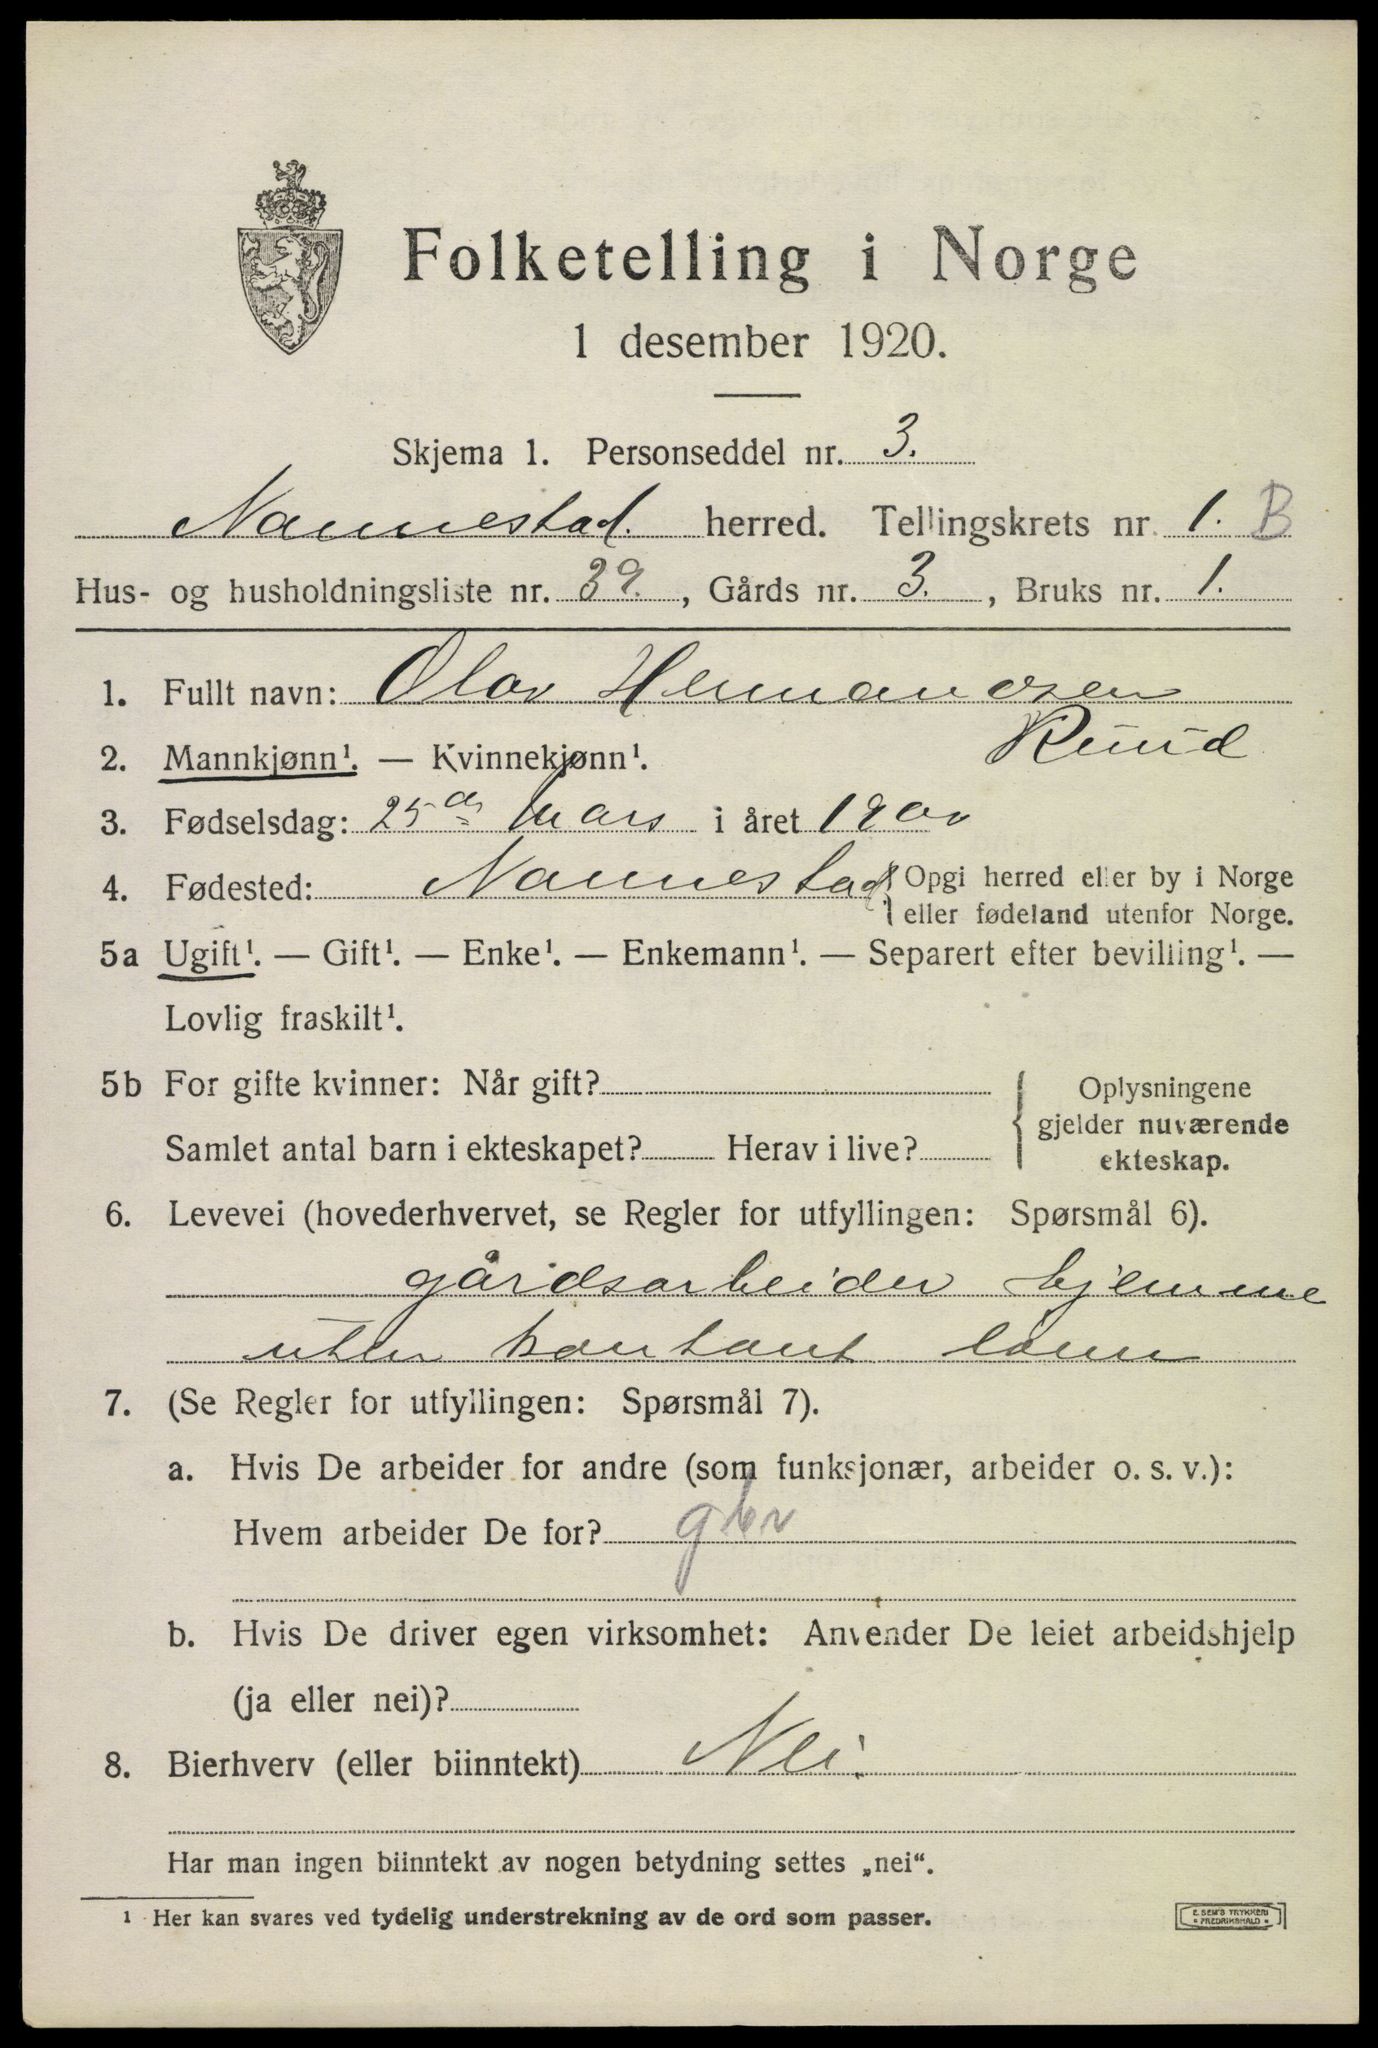 Folketelling i Norge
1 desember 1920.
Skjema 1. Personseddel nr. 3.
Nannestad. herred. Tellingskrets nr. 1. B
Hus- og husholdningsliste nr. 39., Gårds nr. 3., Bruks nr. 1.
1. Fullt navn: Olav Hermandsen
Ruud
2. Mannkjønn¹. — Kvinnekjønn¹.
3. Fødselsdag: 25de Mars i året 1900
4. Fødested: Nannestad. { Opgi herred eller by i Norge
eller fødeland utenfor Norge.
5a Ugift¹. — Gift¹. — Enke¹. — Enkemann¹. — Separert efter bevilling¹. —
Lovlig fraskilt¹.
5b For gifte kvinner: Når gift?
Samlet antal barn i ekteskapet? Herav i live?
{ Oplysningene
gjelder nuværende
ekteskap.
6. Levevei (hovederhvervet, se Regler for utfyllingen: Spørsmål 6).
gårdsarbeider hjemme
uten kontant lønn
7. (Se Regler for utfyllingen: Spørsmål 7).
a. Hvis De arbeider for andre (som funksjonær, arbeider o. s. v.):
Hvem arbeider De for? gbr
b. Hvis De driver egen virksomhet: Anvender De leiet arbeidshjelp
(ja eller nei)?
8. Bierhverv (eller biinntekt) Nei.
Har man ingen biinntekt av nogen betydning settes „nei“.
¹ Her kan svares ved tydelig understrekning av de ord som passer.
E. SEM'S TRYKKERI
• FREDRIKSHALD •